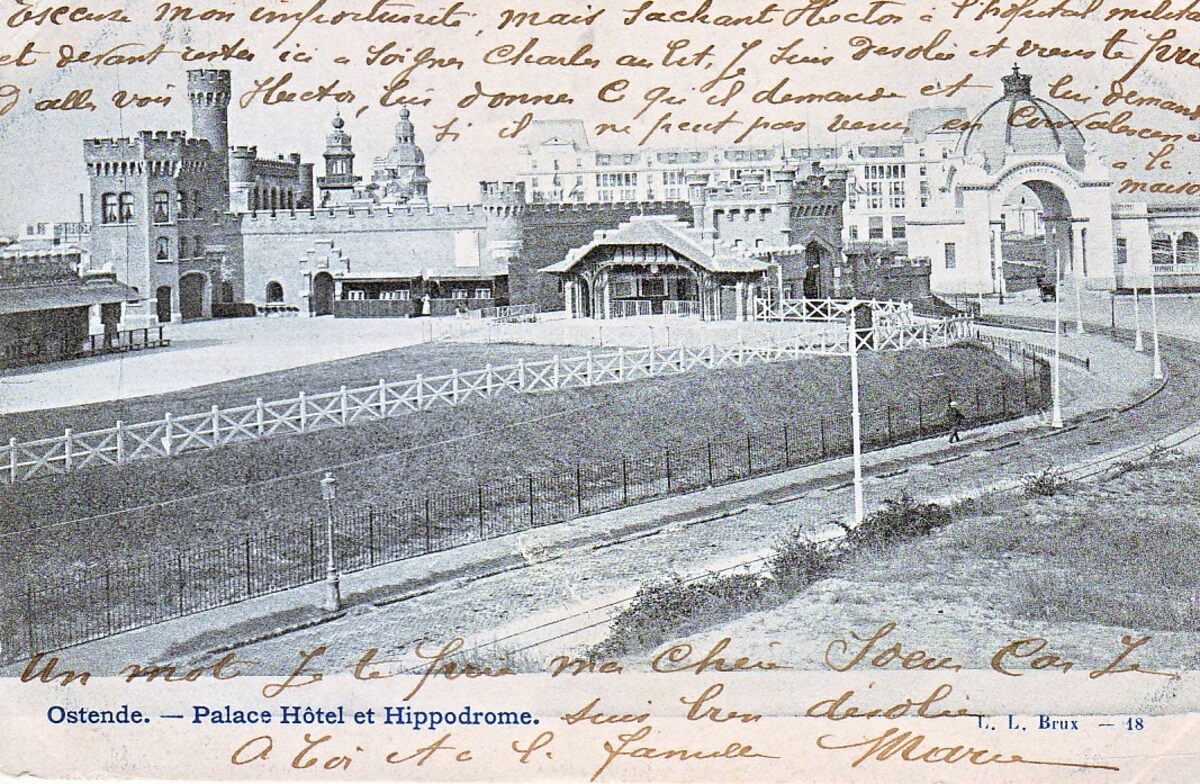 Excuse mon importunité, mais sachant Hector à l'hôpital milit
et devant rester ici à soigner Charles au lit, Je suis désolée et viens te prie
d'aller voir Hector, lui donner ce qu'il demande et lui demande
si il ne peut pas venir en convalescence
à la
maison
Un mot Je te prie ma chère Soeur car Je
Ostende. — Palace Hôtel et Hippodrome. suis bien désolée L. L. Brux — 18
A toi et à la famille Marie